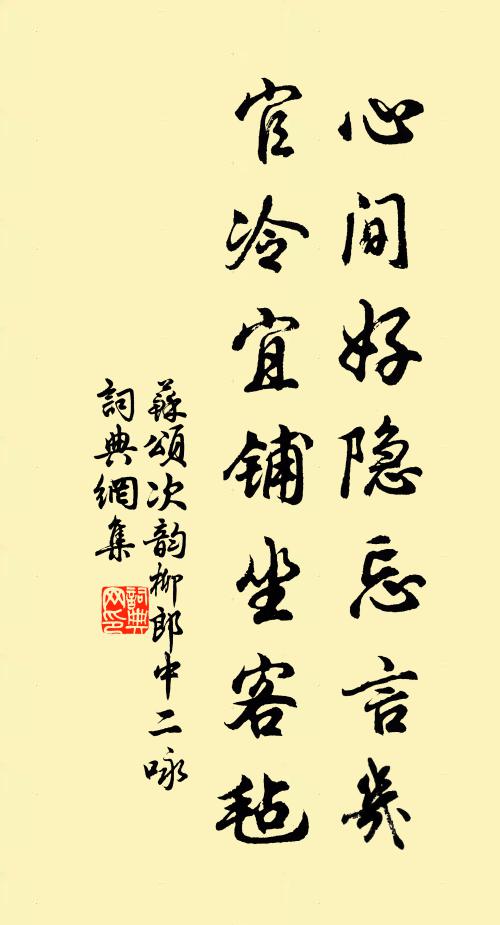 心间好隐忘言幾
官冷宜鋪坐客毡
蘇頌次韵柳郎中二咏
詞典網集
詞典
网印